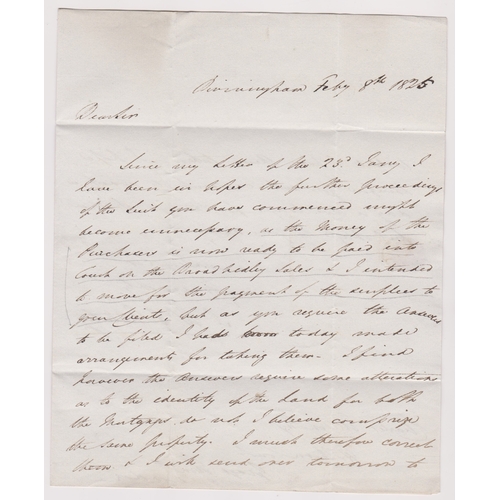 Birmingham Feby 8th 1825
Dear Sir
Since my Letter of the 23d Jany I
have been in hopes the further proceedings
of the Suit you have commenced might
become unnecessary, as the Money of the
Purchasers is now ready to be paid into
Court on the Sales & I intended
to move for the payment of the surpluses to
your Clients, but as you require the Answers
to be filed I have today made
arrangements for taking them. I find
however the Answers require some alterations
as to the identity of the Land for both
the Mortgages do not I believe comprize
the same property. I must therefore correct
them & I will send over tomorrow to